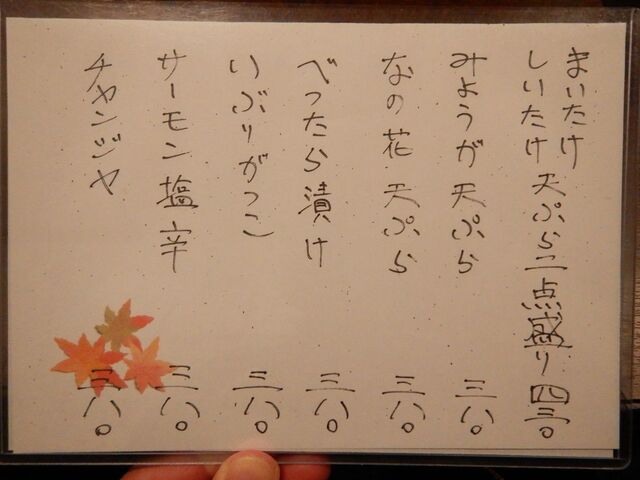 まいたけ
しいたけ 天ぷら二点盛り 四三〇
みょうが天ぷら 三八〇
なの花 天ぷら 三八〇
べったら漬け 三八〇
いぶりがっこ 三八〇
サーモン塩辛 三八〇
チャンジャ 三八〇